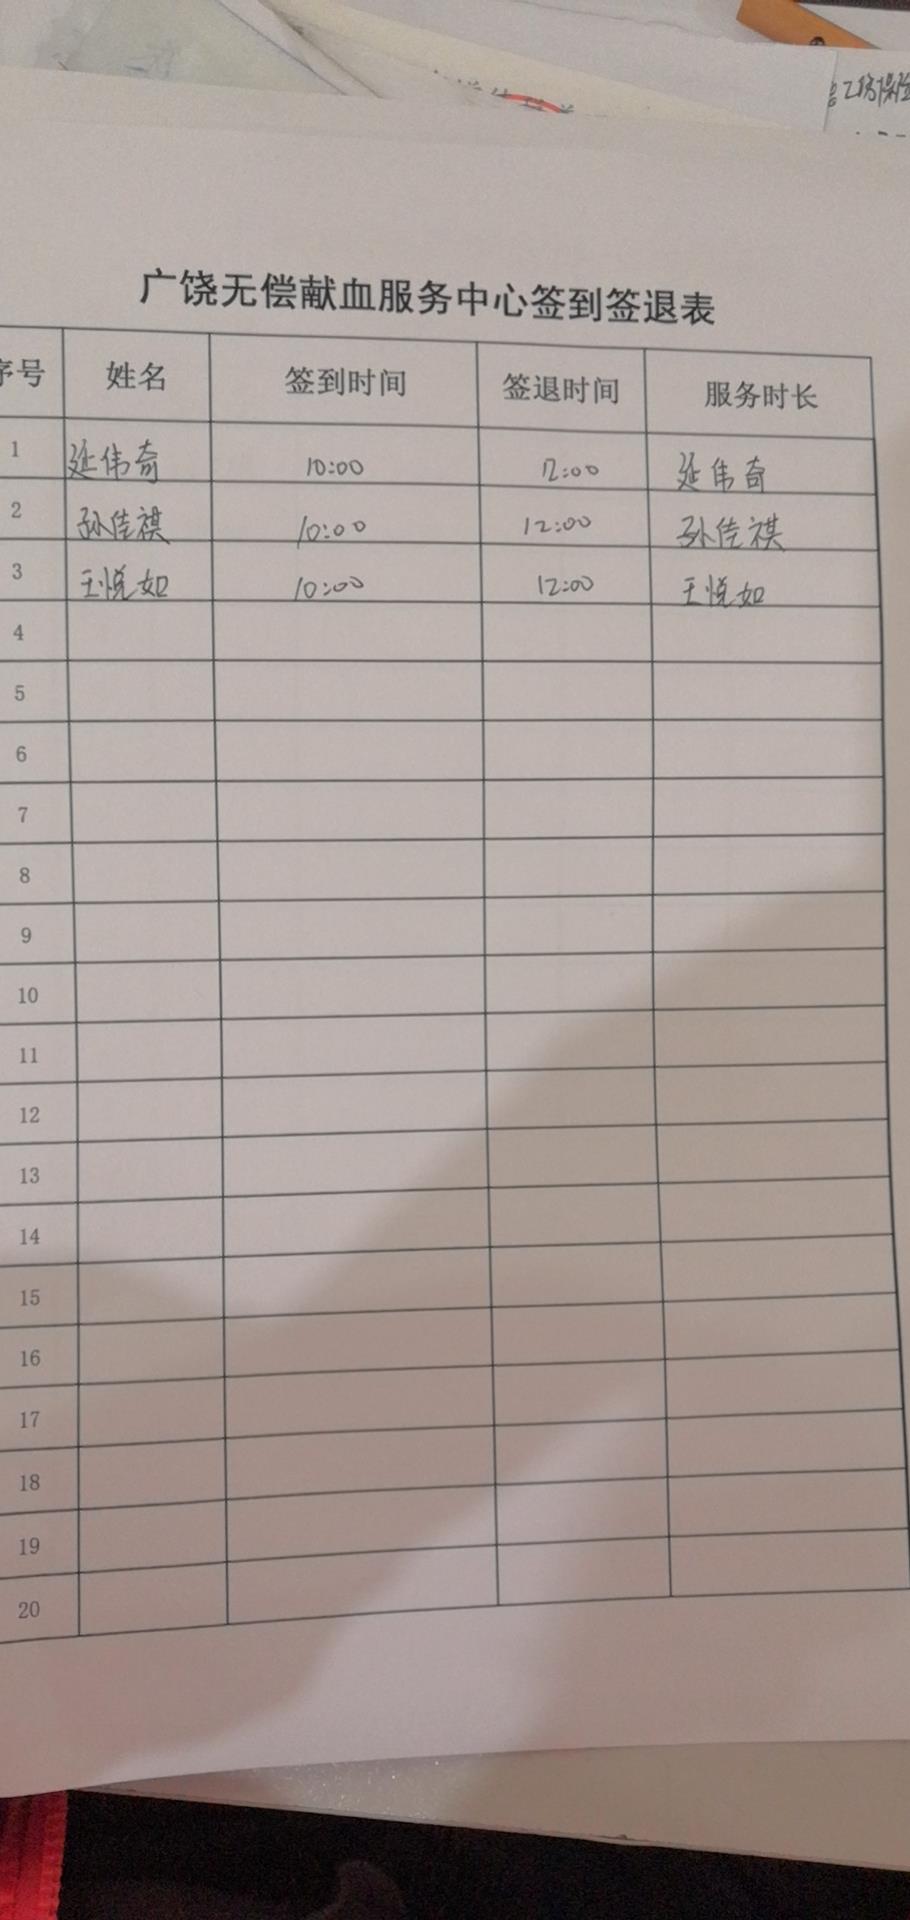 工伤保险
广饶无偿献血服务中心签到签退表
序号 姓名 签到时间 签退时间 服务时长
1 延伟奇 10:00 12:00 延伟奇
2 孙佳祺 10:00 12:00 孙佳祺
3 王悦如 10:00 12:00 王悦如
4
5
6
7
8
9
10
11
12
13
14
15
16
17
18
19
20